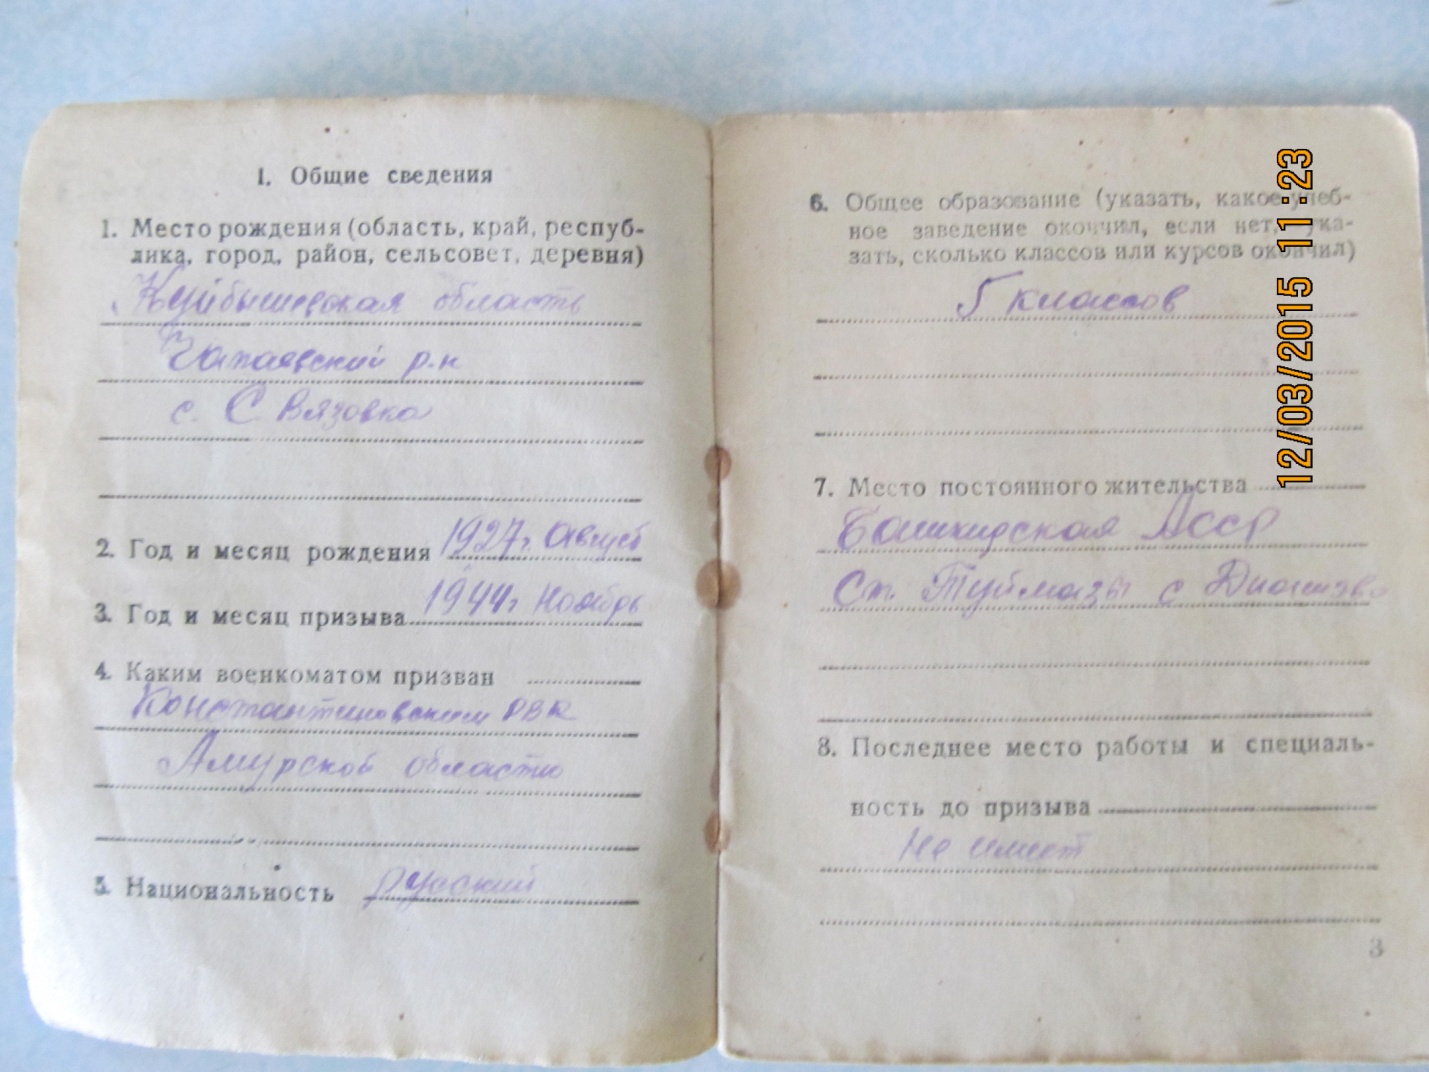 1. Общие сведения
1. Место рождения (область, край, респуб-
лика, город, район, сельсовет, деревня)
Куйбышевская область
Чапаевский р-н
с. С Вязовка
2. Год и месяц рождения 1927г. Август
3. Год и месяц призыва 1944г Ноябрь
4. Каким военкоматом призван
Константиновским РВК
Амурской области
5. Национальность русский
6. Общее образование (указать, какое учеб-
ное заведение окончил, если нет, ука-
зать, сколько классов или курсов окончил)
5 классов
7. Место постоянного жительства
Башкирская АССР
Ст. Туймазы с
8. Последнее место работы и специаль-
ность до призыва
Не имеет
3
12/03/2015 11:23